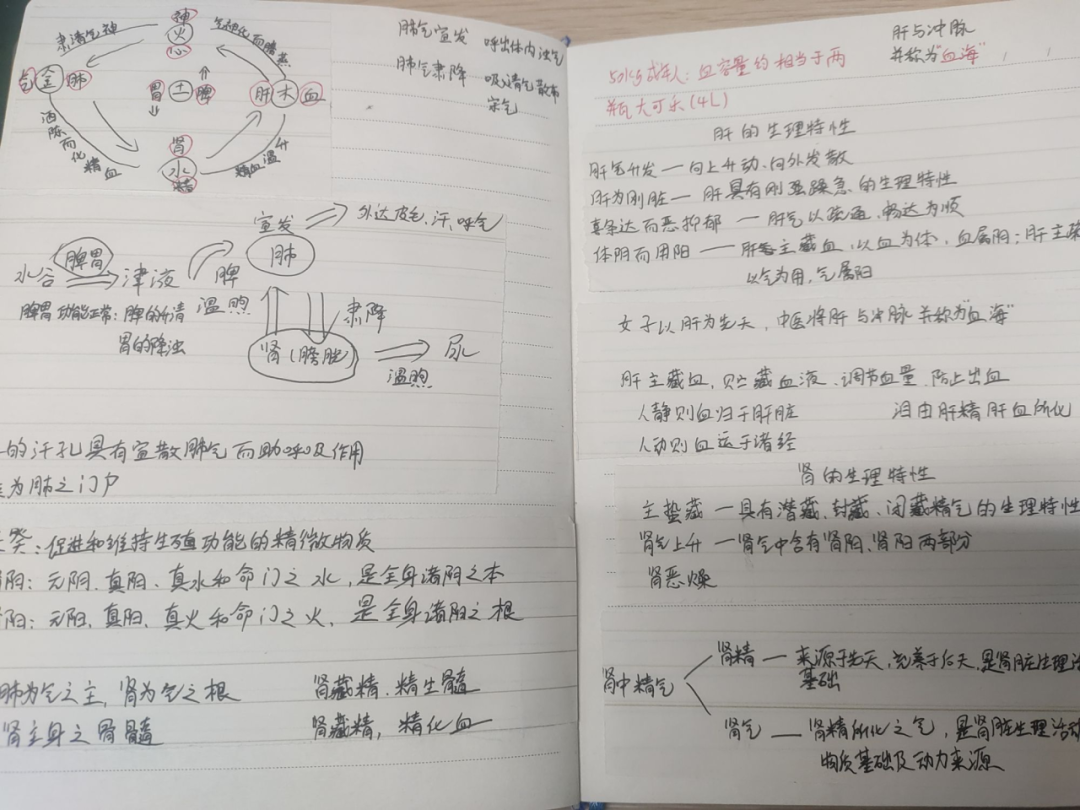 神
火
心
肃清气神
气神化而腾蒸
气 金 肺
胃 土 脾
肝 木 血
洒陈而化精血
精血温升
肾
水
精
肺气宣发 呼出体内浊气
肺气肃降 吸清气散布
宗气
宣发 外达皮毛,汗,呼气
肺
水谷 脾胃 津液 脾
温煦
脾胃功能正常:脾的升清
胃的降浊
肃降
肾(膀胱) 尿
温煦
的汗孔具有宣散肺气而助呼吸作用
为肺之门户
癸:促进和维持生殖功能的精微物质
阴:元阴、真阴、真水和命门之水,是全身诸阴之本
阳:元阳、真阳、真火和命门之火,是全身诸阳之根
肺为气之主,肾为气之根 肾藏精,精生髓
肾主身之骨髓 肾藏精,精化血
肝与冲脉
并称为"血海"
50kg成年人:血容量约相当于两
瓶大可乐(4L)
肝的生理特性
肝气升发—向上升动、向外发散
肝为刚脏—肝具有刚强躁急的生理特性
喜条达而恶抑郁—肝气以疏通、畅达为顺
体阴而用阳—肝主藏血,以血为体,血属阴;肝主疏
以气为用,气属阳
女子以肝为先天,中医将肝与冲脉并称为"血海"
肝主藏血,贮藏血液、调节血量、防止出血
人静则血归于肝脏 泪由肝精肝血所化
人动则血运于诸经
肾的生理特性
主蛰藏—具有潜藏、封藏、闭藏精气的生理特性
肾气上升—肾气中含有肾阳、肾阳两部分
肾恶燥
肾中精气
肾精—来源于先天,充养于后天,是肾脏生理活
基础
肾气—肾精所化之气,是肾脏生理活动
物质基础及动力来源